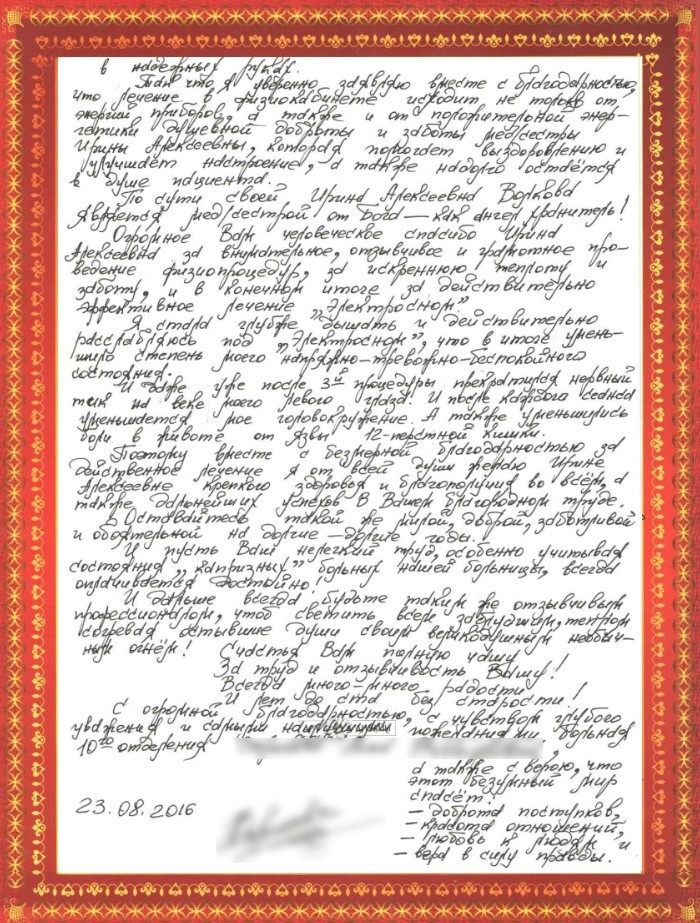 в надежных руках.
Так что я уверенно заявляю вместе с благодарностью,
что лечение в физиокабинете исходит не только от
энергии приборов, а также и от положительной энер-
гетики душевной доброты и заботы мед/сестры
Ирины Алексеевны, которая помогает выздоровлению и
улучшает настроение, а также надолго остаётся
в душе пациента.
По сути своей Ирина Алексеевна Волкова
является мед/сестрой от Бога — как ангел хранитель!
Огромное Вам человеческое спасибо Ирина
Алексеевна за внимательное, отзывчивое и грамотное про-
ведение физиопроцедур, за искреннюю теплоту и
заботу, и в конечном итоге за действительно
эффективное лечение „Электросном".
Я стала глубже дышать и действительно
расслабляюсь под „Электросном", что в итоге умень-
шило степень моего напряжно-тревожно-беспокойного
состояния.
И даже уже после 3й процедуры прекратился нервный
тик на веке моего левого глаза! И после каждого сеанса
уменьшается мое головокружение. А также уменьшились
боли в животе от язвы 12-перстной кишки.
Поэтому вместе с безмерной благодарностью за
действенное лечение я от всей души желаю Ирине
Алексеевне крепкого здоровья и благополучия во всём, а
также дальнейших успехов в Вашем благородном труде.
Оставайтесь такой же милой, доброй, заботливой
и обаятельной на долгие-долгие годы.
И пусть Ваш нелегкий труд, особенно учитывая
состояния „капризных" больных нашей больницы, всегда
оплачивается достойно!
И дальше всегда будьте таким же отзывчивым
профессионалом, чтоб светить всем заблудшим, теплом
согревая остывшие души своим великодушным необыч-
ным огнём! Счастья Вам полную чашу
За труд и отзывчивость Вашу!
Всегда много-много радости
И лет до ста без старости!
С огромной благодарностью, с чувством глубого
уважения и самыми наилучшими пожеланиями, больная
10го отделения
а также с верою, что
этот безумный мир
спасёт:
– доброта поступков,
– красота отношений,
– любовь к людям и
– вера в силу правды.
23.08.2016